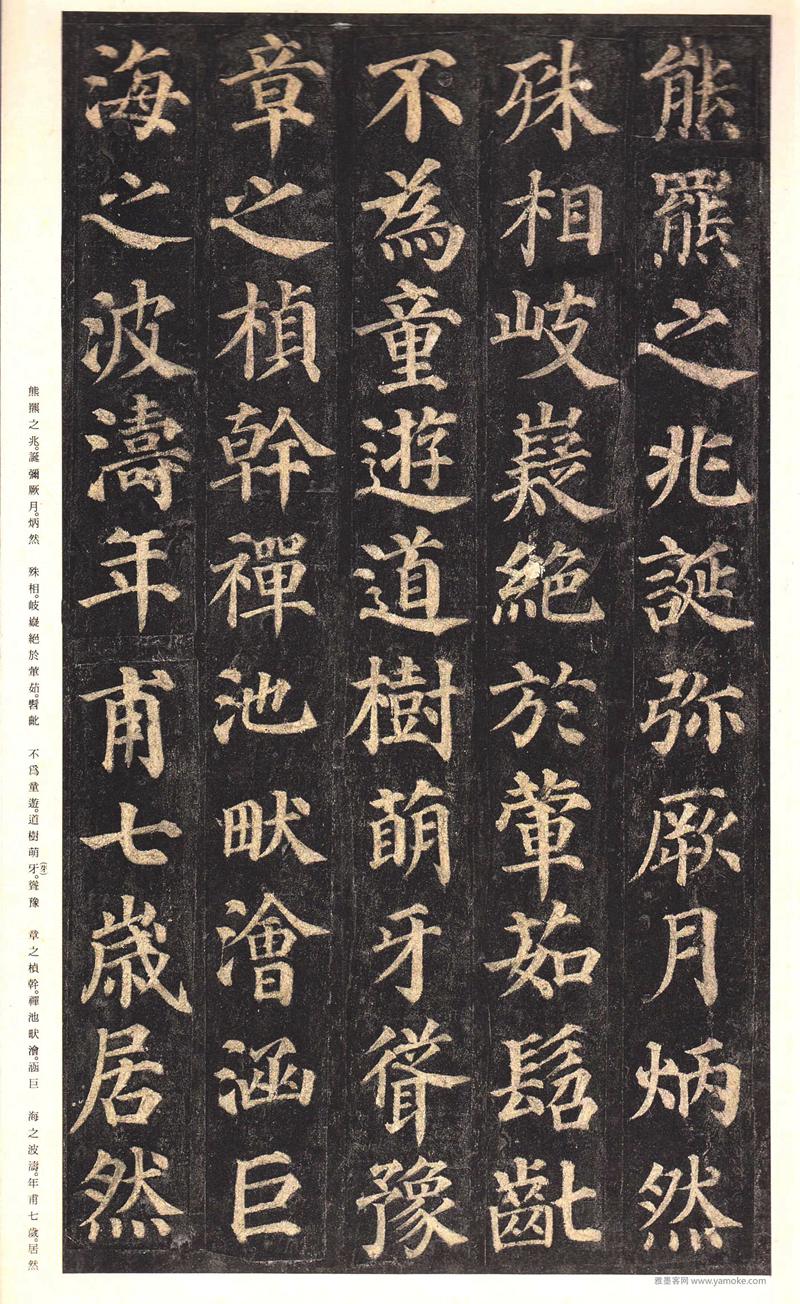 熊羆之兆誕弥厥月炳然
殊相岐嶷絶於葷茹髫齓
不為童遊道樹萌牙聳豫
章之楨幹禪池畎澮涵巨
海之波濤年甫七歳居然
熊羆之兆。誕彌厥月。炳然　殊相。岐嶷絕於葷茹。髫齔　不爲童遊。道樹萌牙(芽)。聳豫　章之楨幹。禪池畎澮。涵巨　海之波濤。年甫七歲。居然
雅墨客网 www.yamoke.com